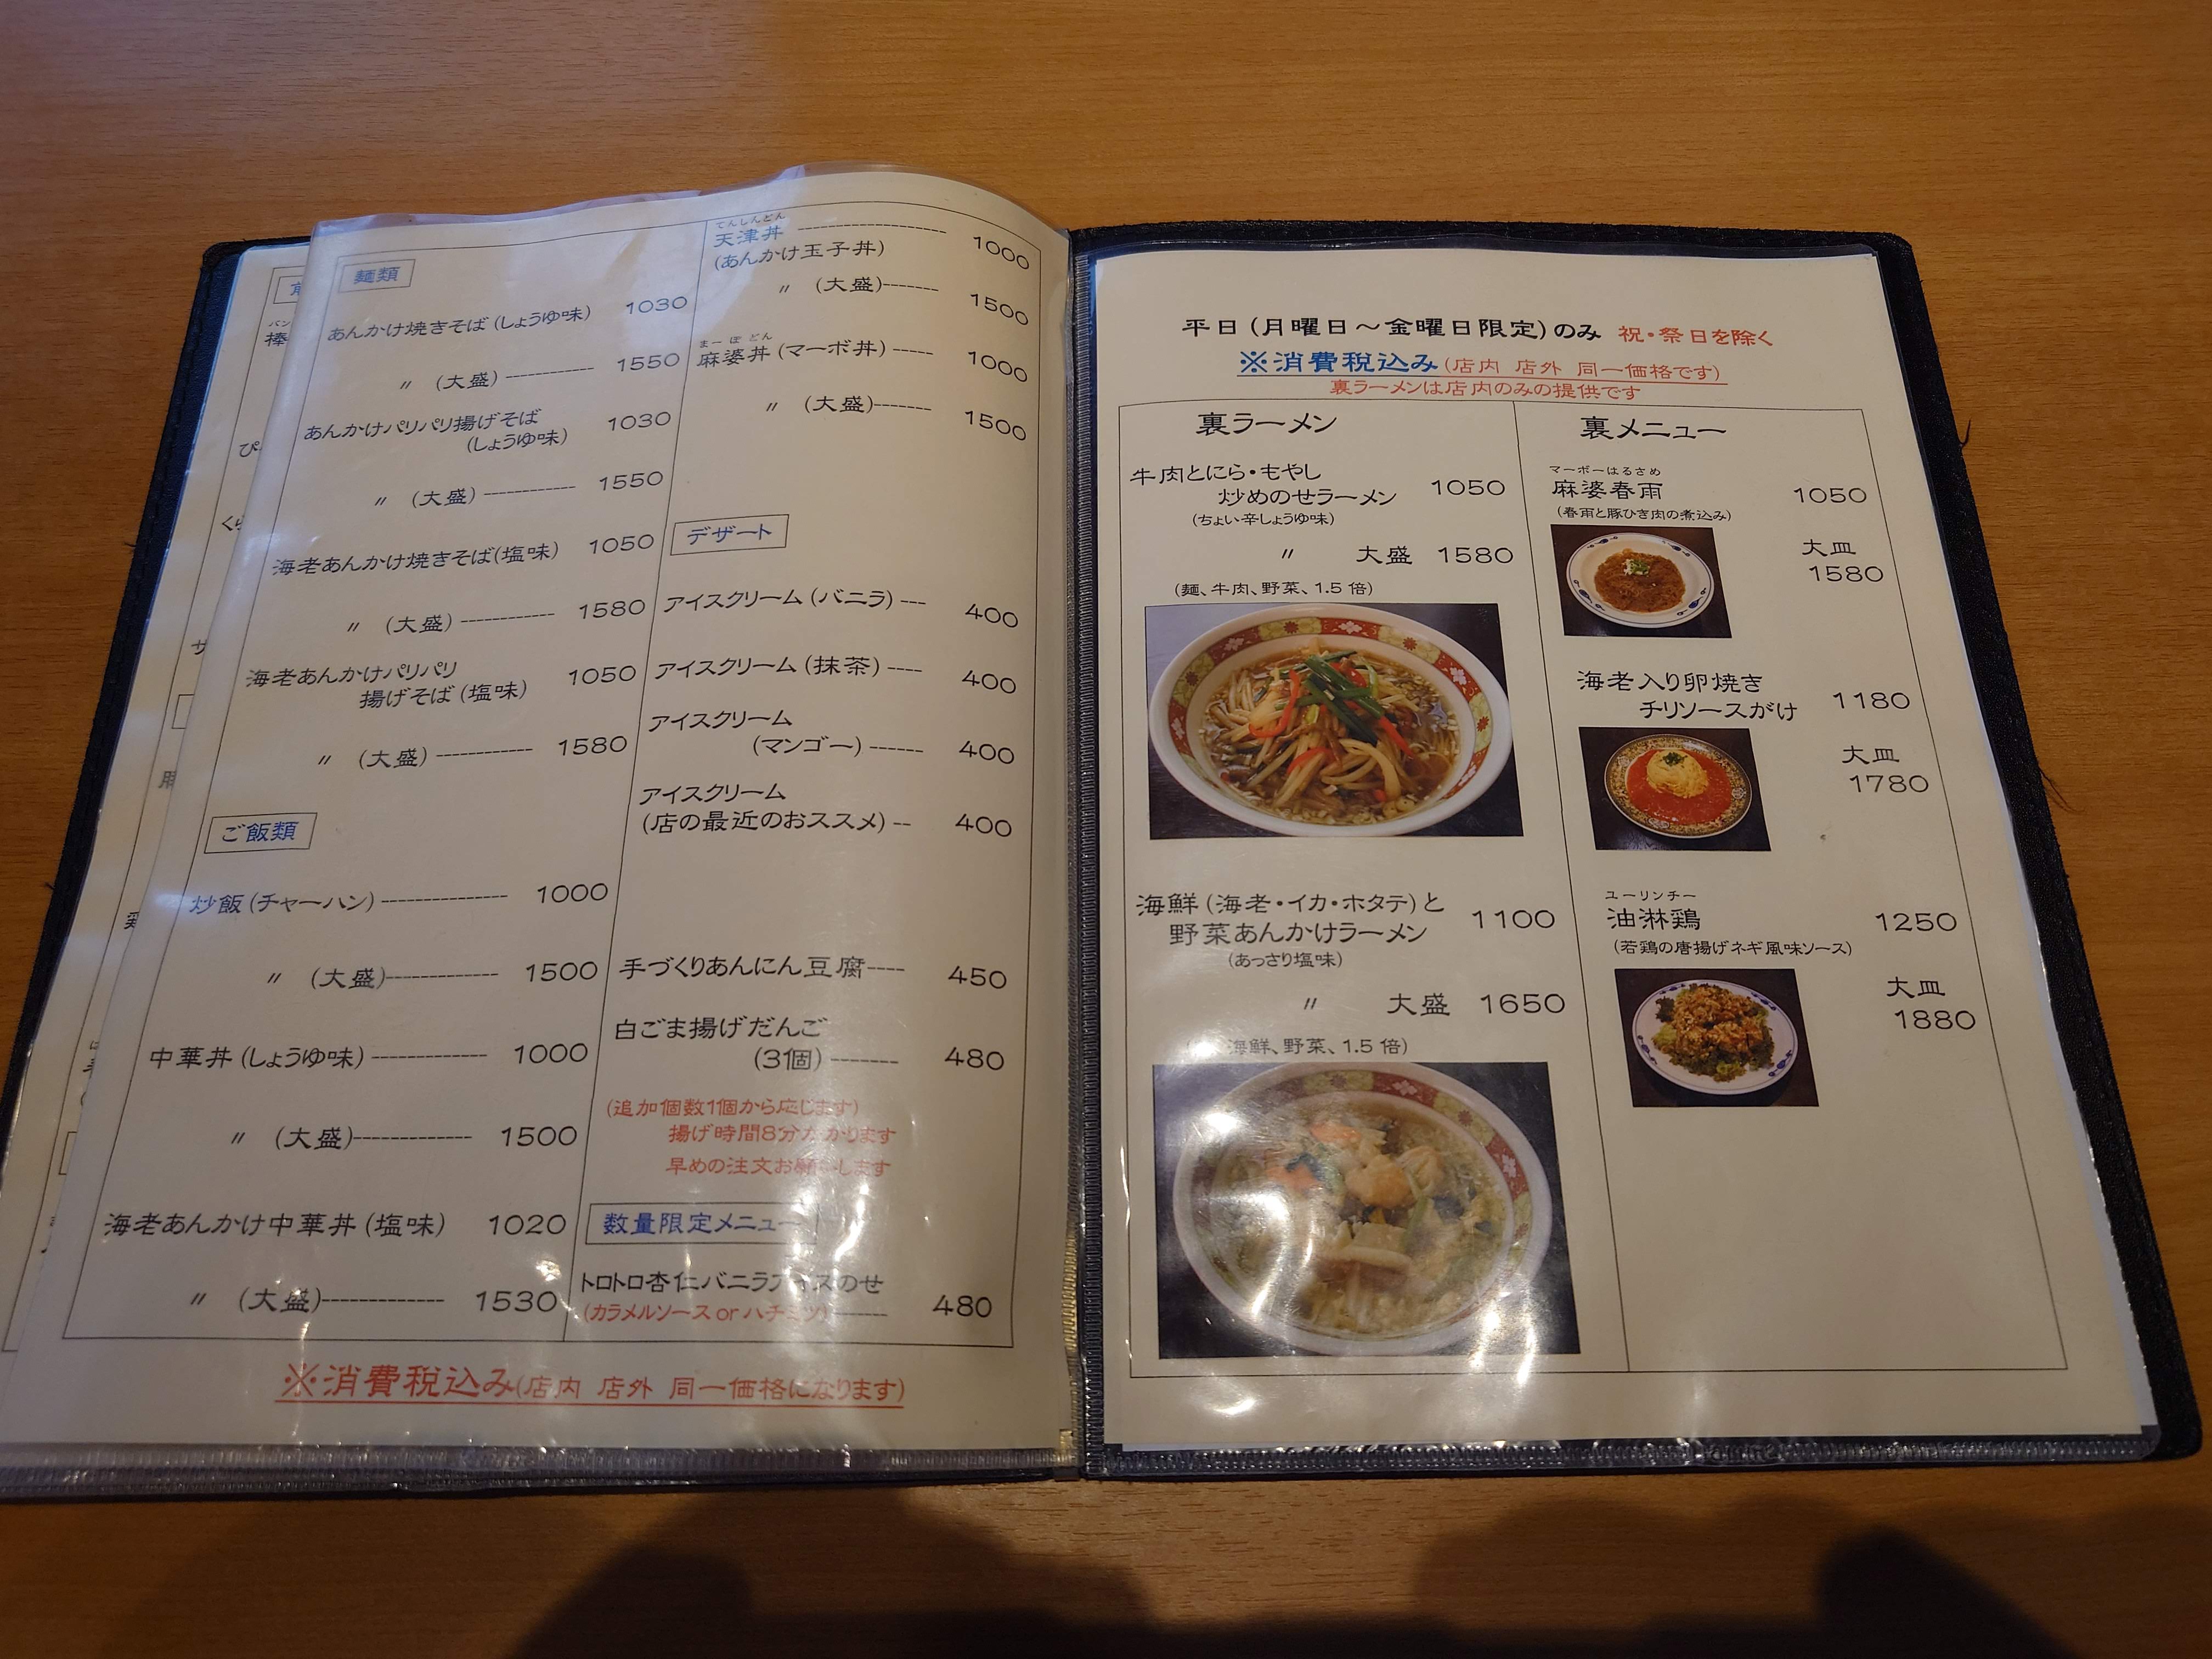 麺類
あんかけ焼きそば(しょうゆ味) 1030
〃 (大盛) 1550
あんかけパリパリ揚げそば
(しょうゆ味) 1030
〃 (大盛) 1550
海老あんかけ焼きそば(塩味) 1050
〃 (大盛) 1580
海老あんかけパリパリ
揚げそば(塩味) 1050
〃 (大盛) 1580
ご飯類
炒飯(チャーハン) 1000
〃 (大盛) 1500
中華丼(しょうゆ味) 1000
〃 (大盛) 1500
海老あんかけ中華丼(塩味) 1020
〃 (大盛) 1530
てんしんどん
天津丼 1000
(あんかけ玉子丼)
〃 (大盛) 1500
まーぼどん
麻婆丼(マーボ丼) 1000
〃 (大盛) 1500
デザート
アイスクリーム(バニラ) 400
アイスクリーム(抹茶) 400
アイスクリーム
(マンゴー) 400
アイスクリーム
(店の最近のおススメ) 400
手づくりあんにん豆腐 450
白ごま揚げだんご
(3個) 480
(追加個数1個から応じます)
揚げ時間8分かかります
早めの注文お願いします
数量限定メニュー
トロトロ杏仁バニラアイスのせ
(カラメルソース or ハチミツ) 480
※消費税込み(店内 店外 同一価格になります)
平日(月曜日～金曜日限定)のみ 祝・祭日を除く
※消費税込み(店内 店外 同一価格です)
裏ラーメンは店内のみの提供です
裏ラーメン
牛肉とにら・もやし
炒めのせラーメン 1050
(ちょい辛しょうゆ味)
〃 大盛 1580
(麺、牛肉、野菜、1.5倍)
海鮮(海老・イカ・ホタテ)と
野菜あんかけラーメン 1100
(あっさり塩味)
〃 大盛 1650
海鮮、野菜、1.5倍)
裏メニュー
マーボーはるさめ
麻婆春雨 1050
(春雨と豚ひき肉の煮込み)
大皿
1580
海老入り卵焼き
チリソースがけ 1180
大皿
1780
ユーリンチー
油淋鶏 1250
(若鶏の唐揚げネギ風味ソース)
大皿
1880